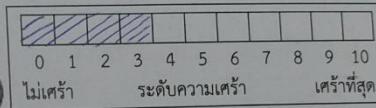 0 1 2 3 4 5 6 7 8 9 10
ไม่เศร้า ระดับความเศร้า เศร้าที่สุด